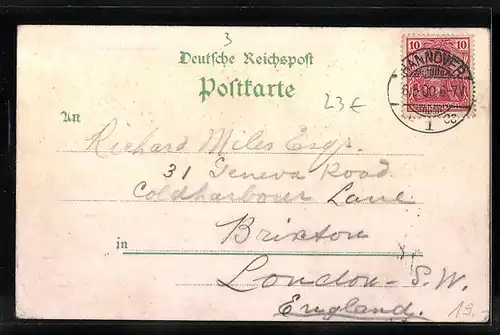 3
Deutsche Reichspost
Postkarte
10 10
HANNOVER
1
23€
An
Richard Miles Esqr.
31 Geneva Road
Coldharbour Lane
in Brixton
London. S. W.
England.
19.-